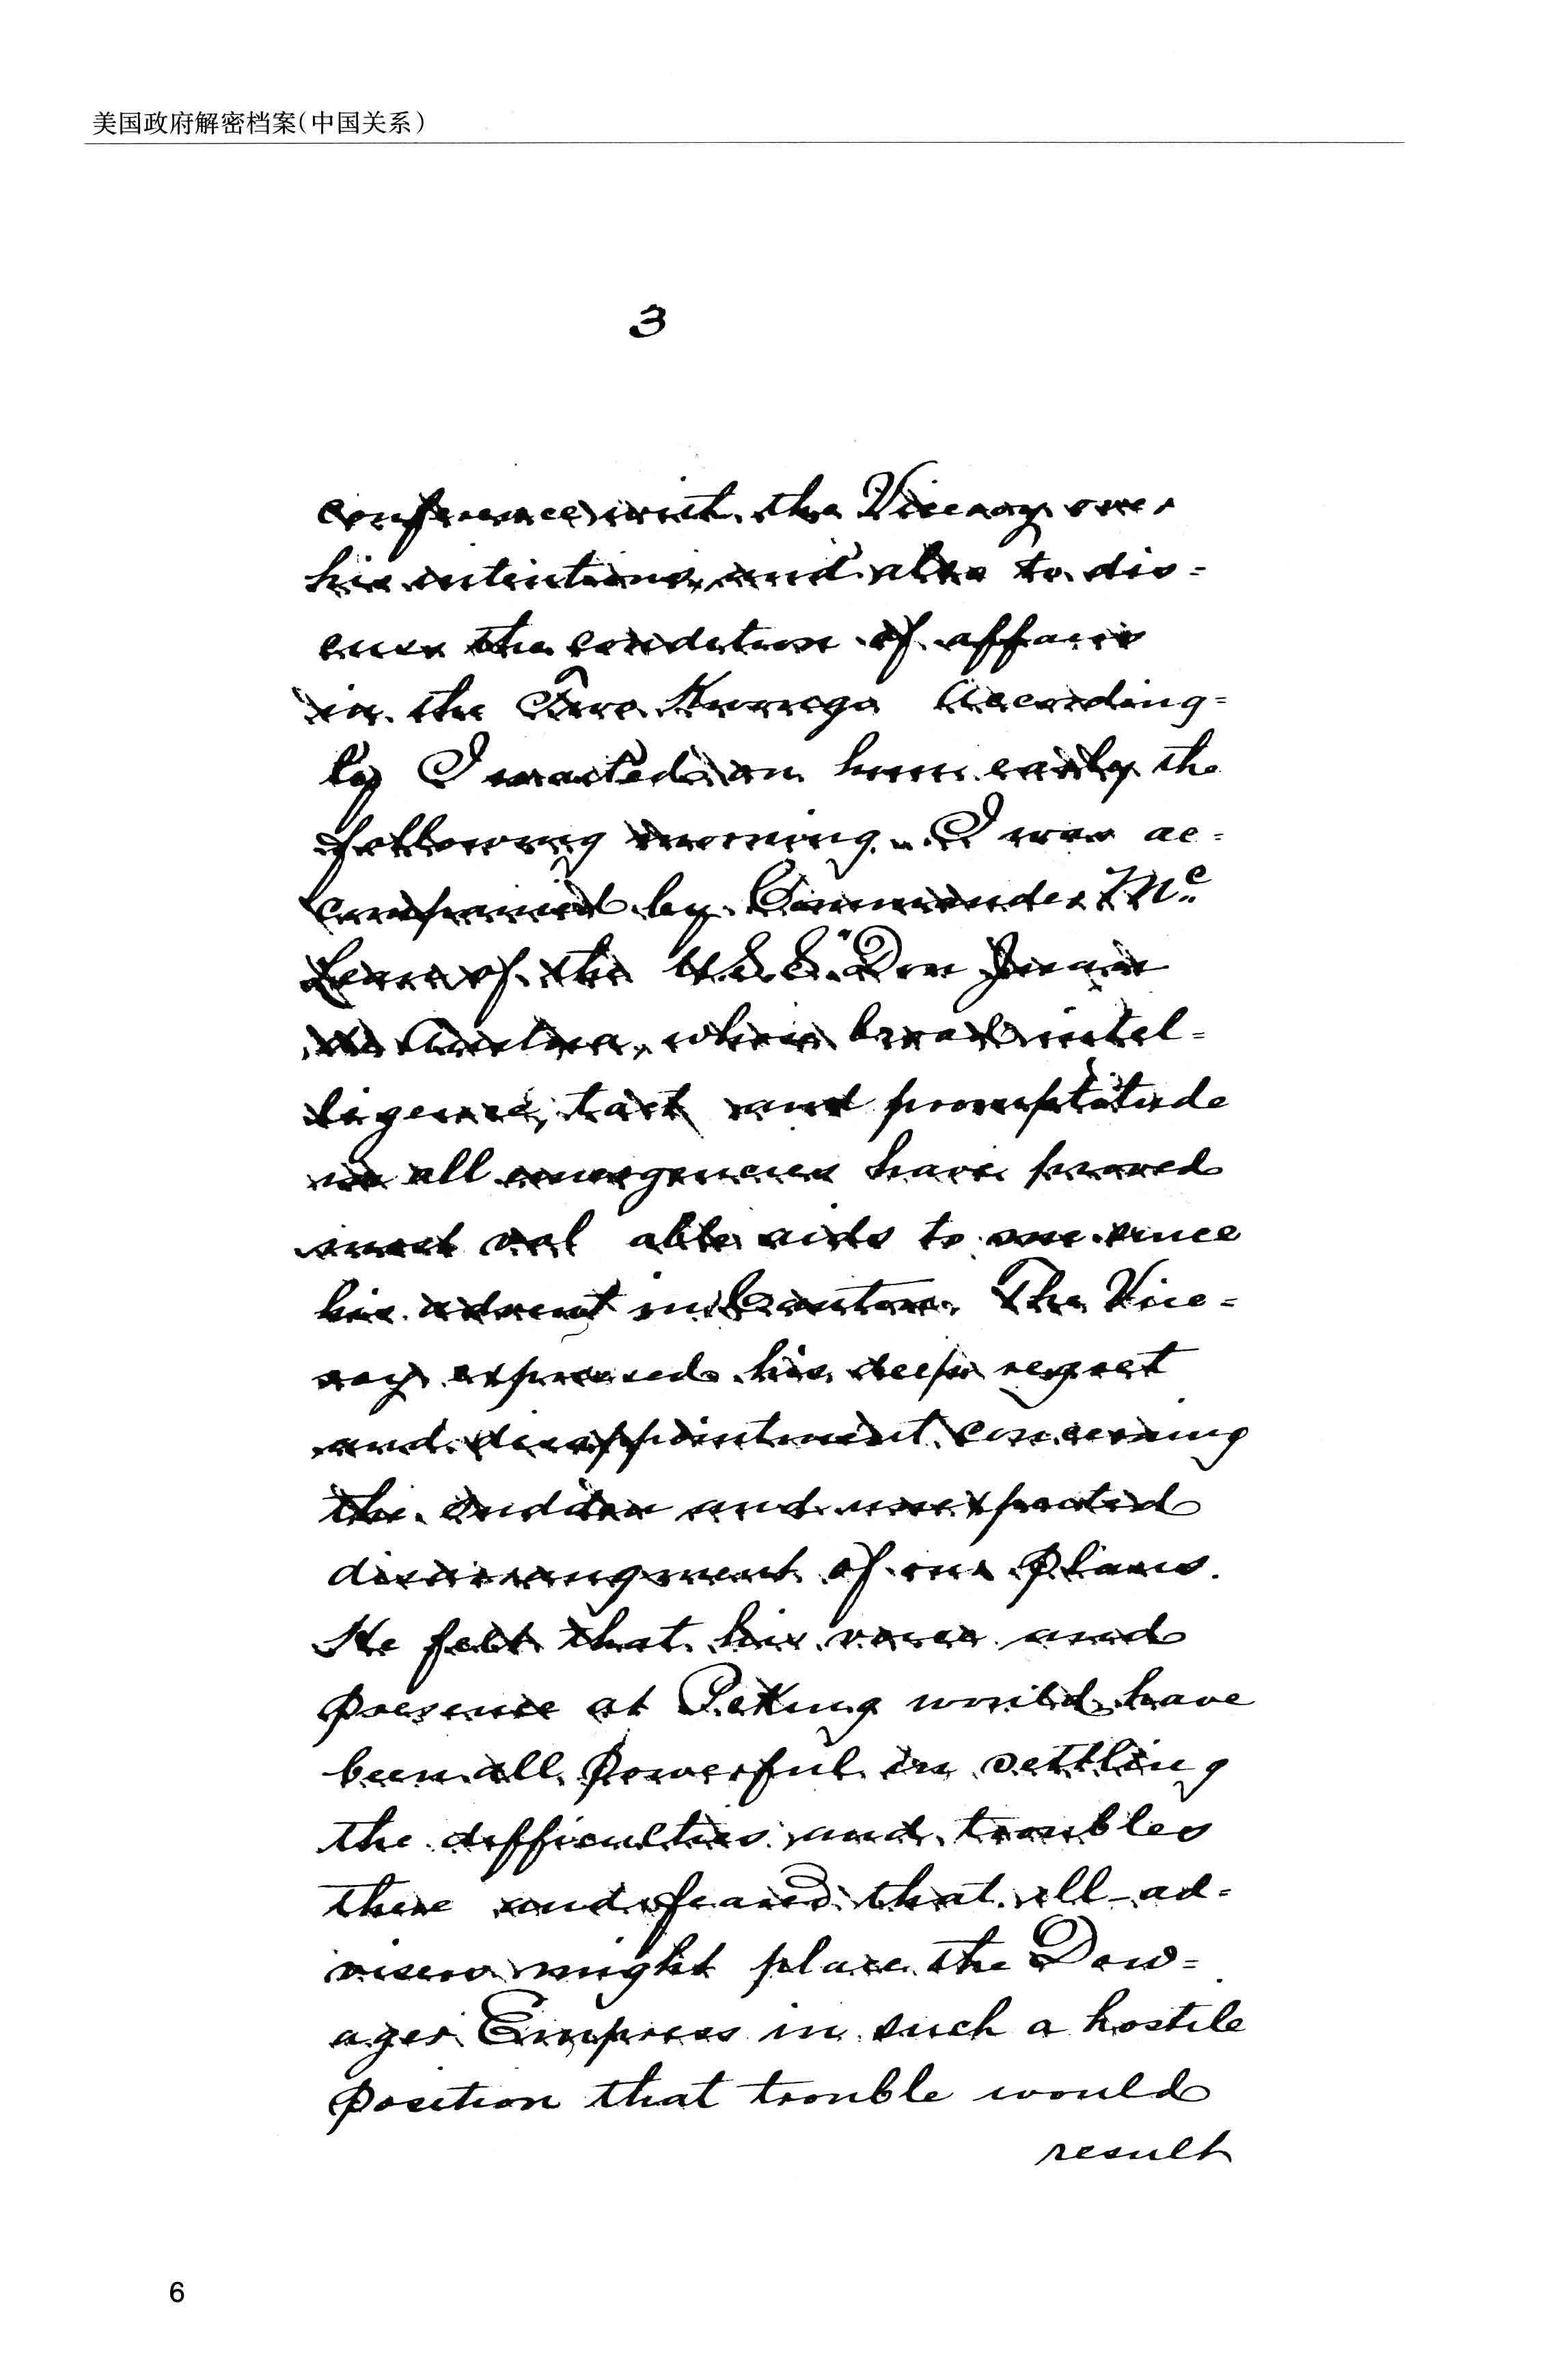 美国政府解密档案(中国关系)
3
conference with the Viceroy over
his intentions, and also to dis=
cuss the condition of affairs
in the Two Kwangs According=
ly I waited on him early the
following morning. I was ac=
companied by Commander Mc
Lean of the U.S.S. "Don Juan
de Austria, whose broad intel=
ligence, tact and promptitude
in all emergencies have proved
most val able aids to me since
his advent in Canton. The Vice=
roy expressed his deep regret
and disappointment concerning
the sudden and unexpected
disarrangment of our plans.
He felt that his voice and
presence at Peking would have
been all powerful in settling
the difficulties and troubles
there and feared that ill-ad=
visers might place the Dow=
ager Empress in such a hostile
position that trouble would
result
6